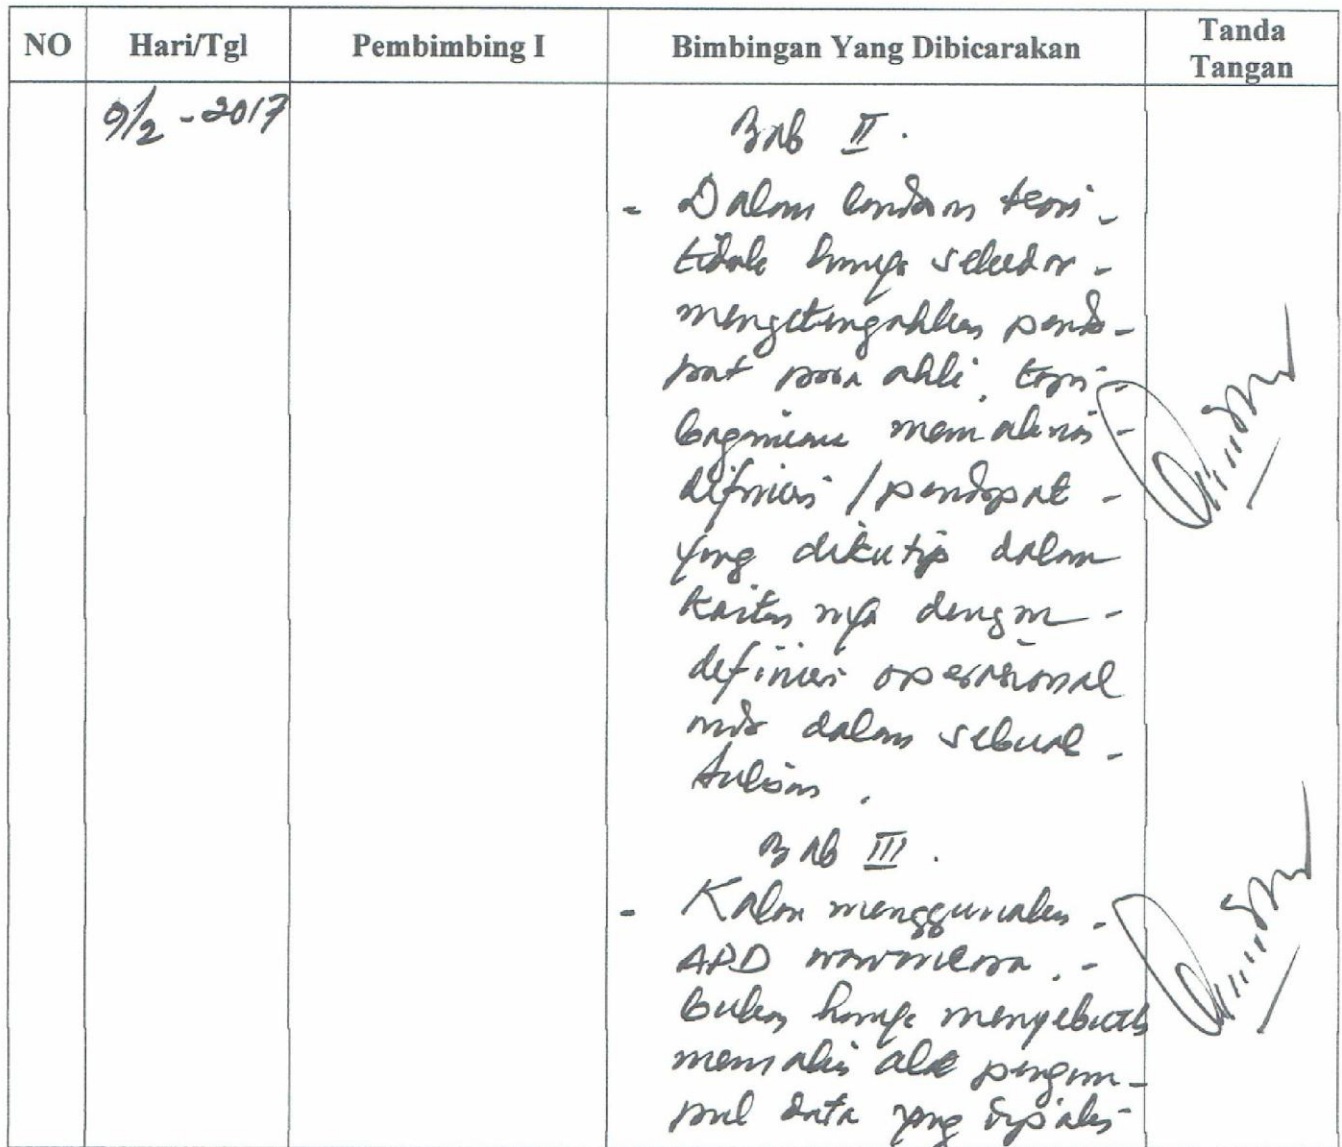 NO Hari/Tgl Pembimbing I Bimbingan Yang Dibicarakan Tanda Tangan
9/2 - 2017
Bab II.
- Dalam landasan teori -
tidak hanya sekedar -
mengetengahkan penda-
pat para ahli, tapi -
bagaimana memaknai -
difinisi / pendapat -
yang dikutip dalam
kaitan nya dengan -
definisi operasional
dalam sebuah -
tulisan.
Bab III.
- Kalau menggunakan -
APD wawancara. -
bukan hanya menyebut
memakai alat pengum-
pul data yang dipakai